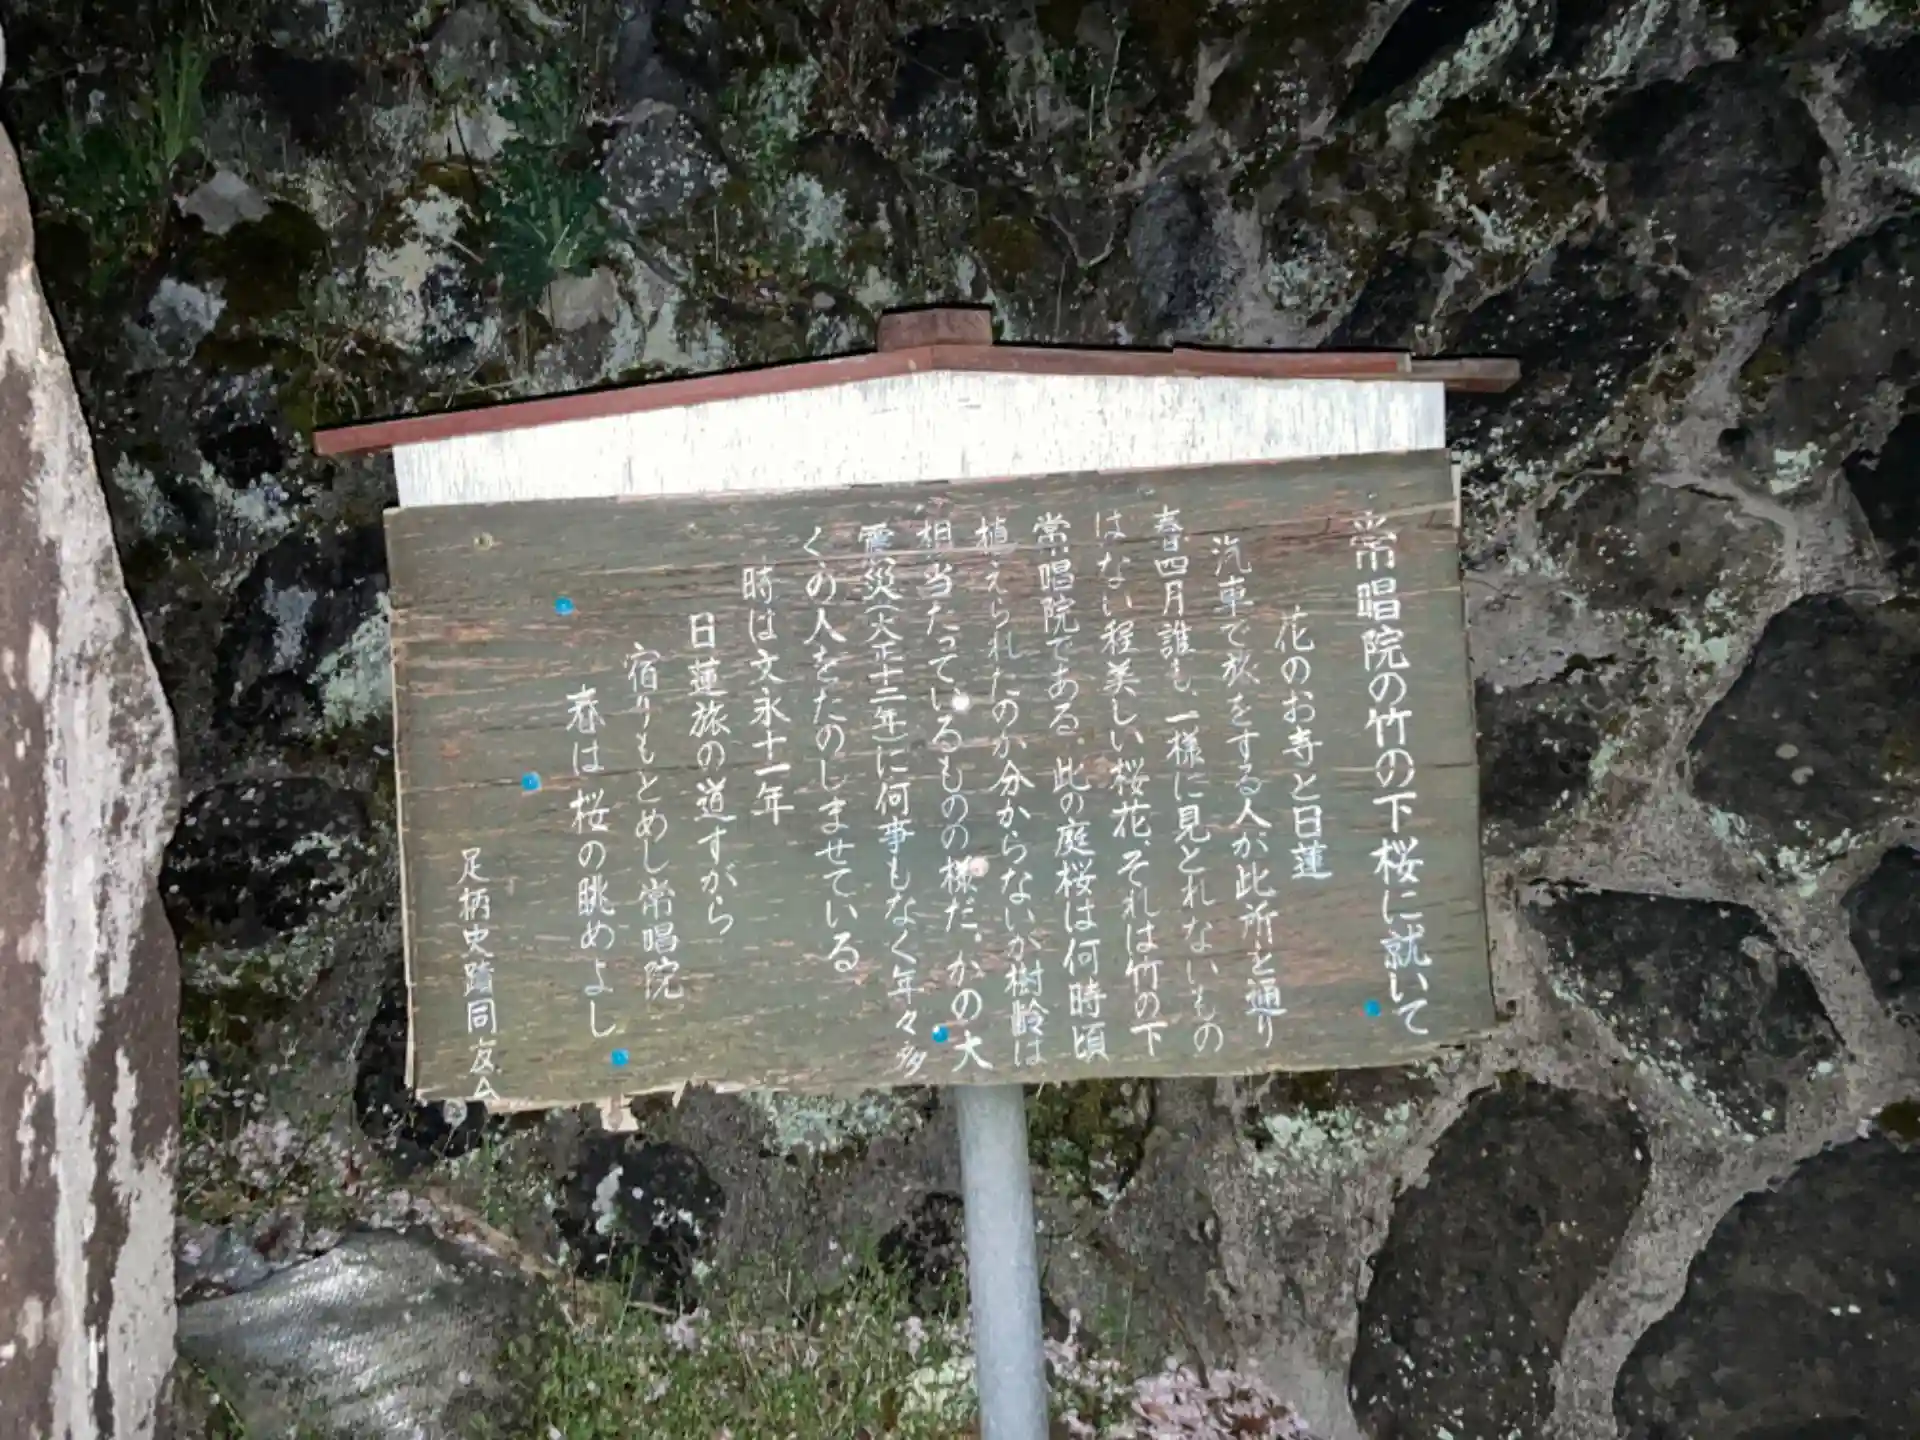 常唱院の竹の下桜に就いて
花のお寺と日蓮
汽車で旅をする人が此所を通り
春四月誰も、一様に見とれないもの
はない程美しい桜花、それは竹の下
常唱院である。此の庭桜は何時頃
植えられたのか分からないが樹齢は
相当たっているものの様だ。かの大
震災(大正十二年)に何事もなく年々多
くの人をたのしませている
時は文永十一年
日蓮旅の道すがら
宿りもとめし常唱院
春は桜の眺めよし
足柄史蹟同友会